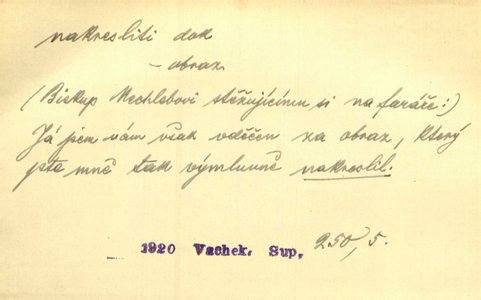 nakresliti dok
– obraz
(Biskup Mechlebovi stěžujícímu si na faráře:)
Já jsem vám však vděčen za obraz, který
jste mně tak výmluvně nakreslil.
1920 Vachek. Sup, 250,5.